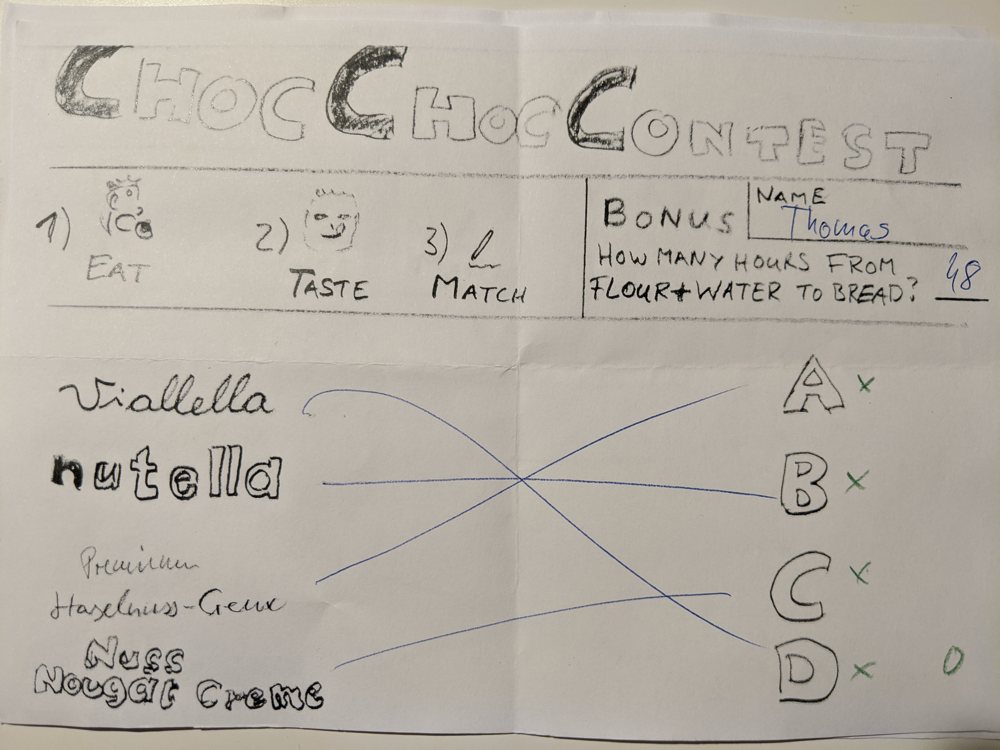 CHOC CHOC CONTEST
1) EAT
2) TASTE
3) MATCH
BONUS
NAME
Thomas
HOW MANY HOURS FROM
FLOUR+WATER TO BREAD? 48
Viallella
nutella
Premium
Haselnuss-Creme
Nuss
Nougat Creme
A x
B x
C x
D x 0